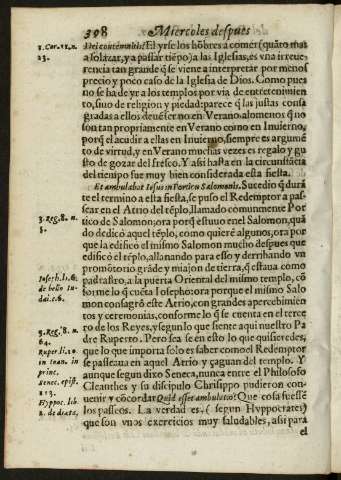 398 Miercoles despues
1. Cor. 11. n. 23.
Dei contemnitis? El yrse los hõbres a comer (quãto mas
a solazar, y a passar tiẽpo) a las Iglesias, es vna irreue-
rencia tan grande q̃ se viene a interpretar por menos
precio y poco caso de la Iglesia de Dios. Como pues
no se ha de yr a los templos por via de entretenimien
to, sino de religion y piedad: parece q̃ las justas consa
gradas a ellos deuẽ ser no en Verano, alomenos q̃ no
son tan propriamente en Verano como en Inuierno,
porq̃ el acudir a ellas en Inuierno, siempre es argumẽ
to de virtud, y en Verano muchas vezes es regalo y gu
sto de gozar del fresco. Y assi hasta en la circunstãcia
del tiempo fue muy bien considerada esta fiesta.
Et ambulabat Iesus in Porticu Salomonis. Sucedio q̃ durã
te el termino a esta fiesta, se puso el Redemptor a pas-
3. Reg. 8. n. 3.
sear en el Atrio del tẽplo, llamado comunmente Por
tico de Salomon: ora porq̃ estuuo en el Salomon, quã
do dedicò aquel tẽplo, como quiere algunos, ora por
que la edificò el mismo Salomon mucho despues que
edificò el tẽplo, allonando para esso y derribando vn
promõtorio grãde y miajon de tierra, q̃ estaua como
Ioseph. li. 6. de bello Iudai. c. 6.
padrastro, a la puerta Oriental del mismo templo, cõ
forme lo q̃ cuẽta Iosepho: ora porque el mismo Salo
mon consagrò este Atrio, con grandes apercebimien
tos y ceremonias, conforme lo q̃ se cuenta en el terce
3. Reg. 8. n. 64.
ro de los Reyes, y segun lo que siente aqui nuestro Pa
Ruper. li. 10. in Ioan. in princ.
dre Ruperto. Pero sea se en esto lo que quisieredes,
que lo que importa solo es saber como el Redemptor
se passeaua en aquel Atrio y çaguan del templo. Y
Senec. epist. 113.
aunque segun dixo Seneca, nunca entre el Philosofo
Cleanthes y su discipulo Chrisippo pudieron con-
Hyppoc. lib. 2. de diæta,
uenir y cõcordar Quid esset ambulatio? Que cosa fuessẽ
los passeos. La verdad es, (segun Hyppocrates)
que son vnos exercicios muy saludables, assi para
el